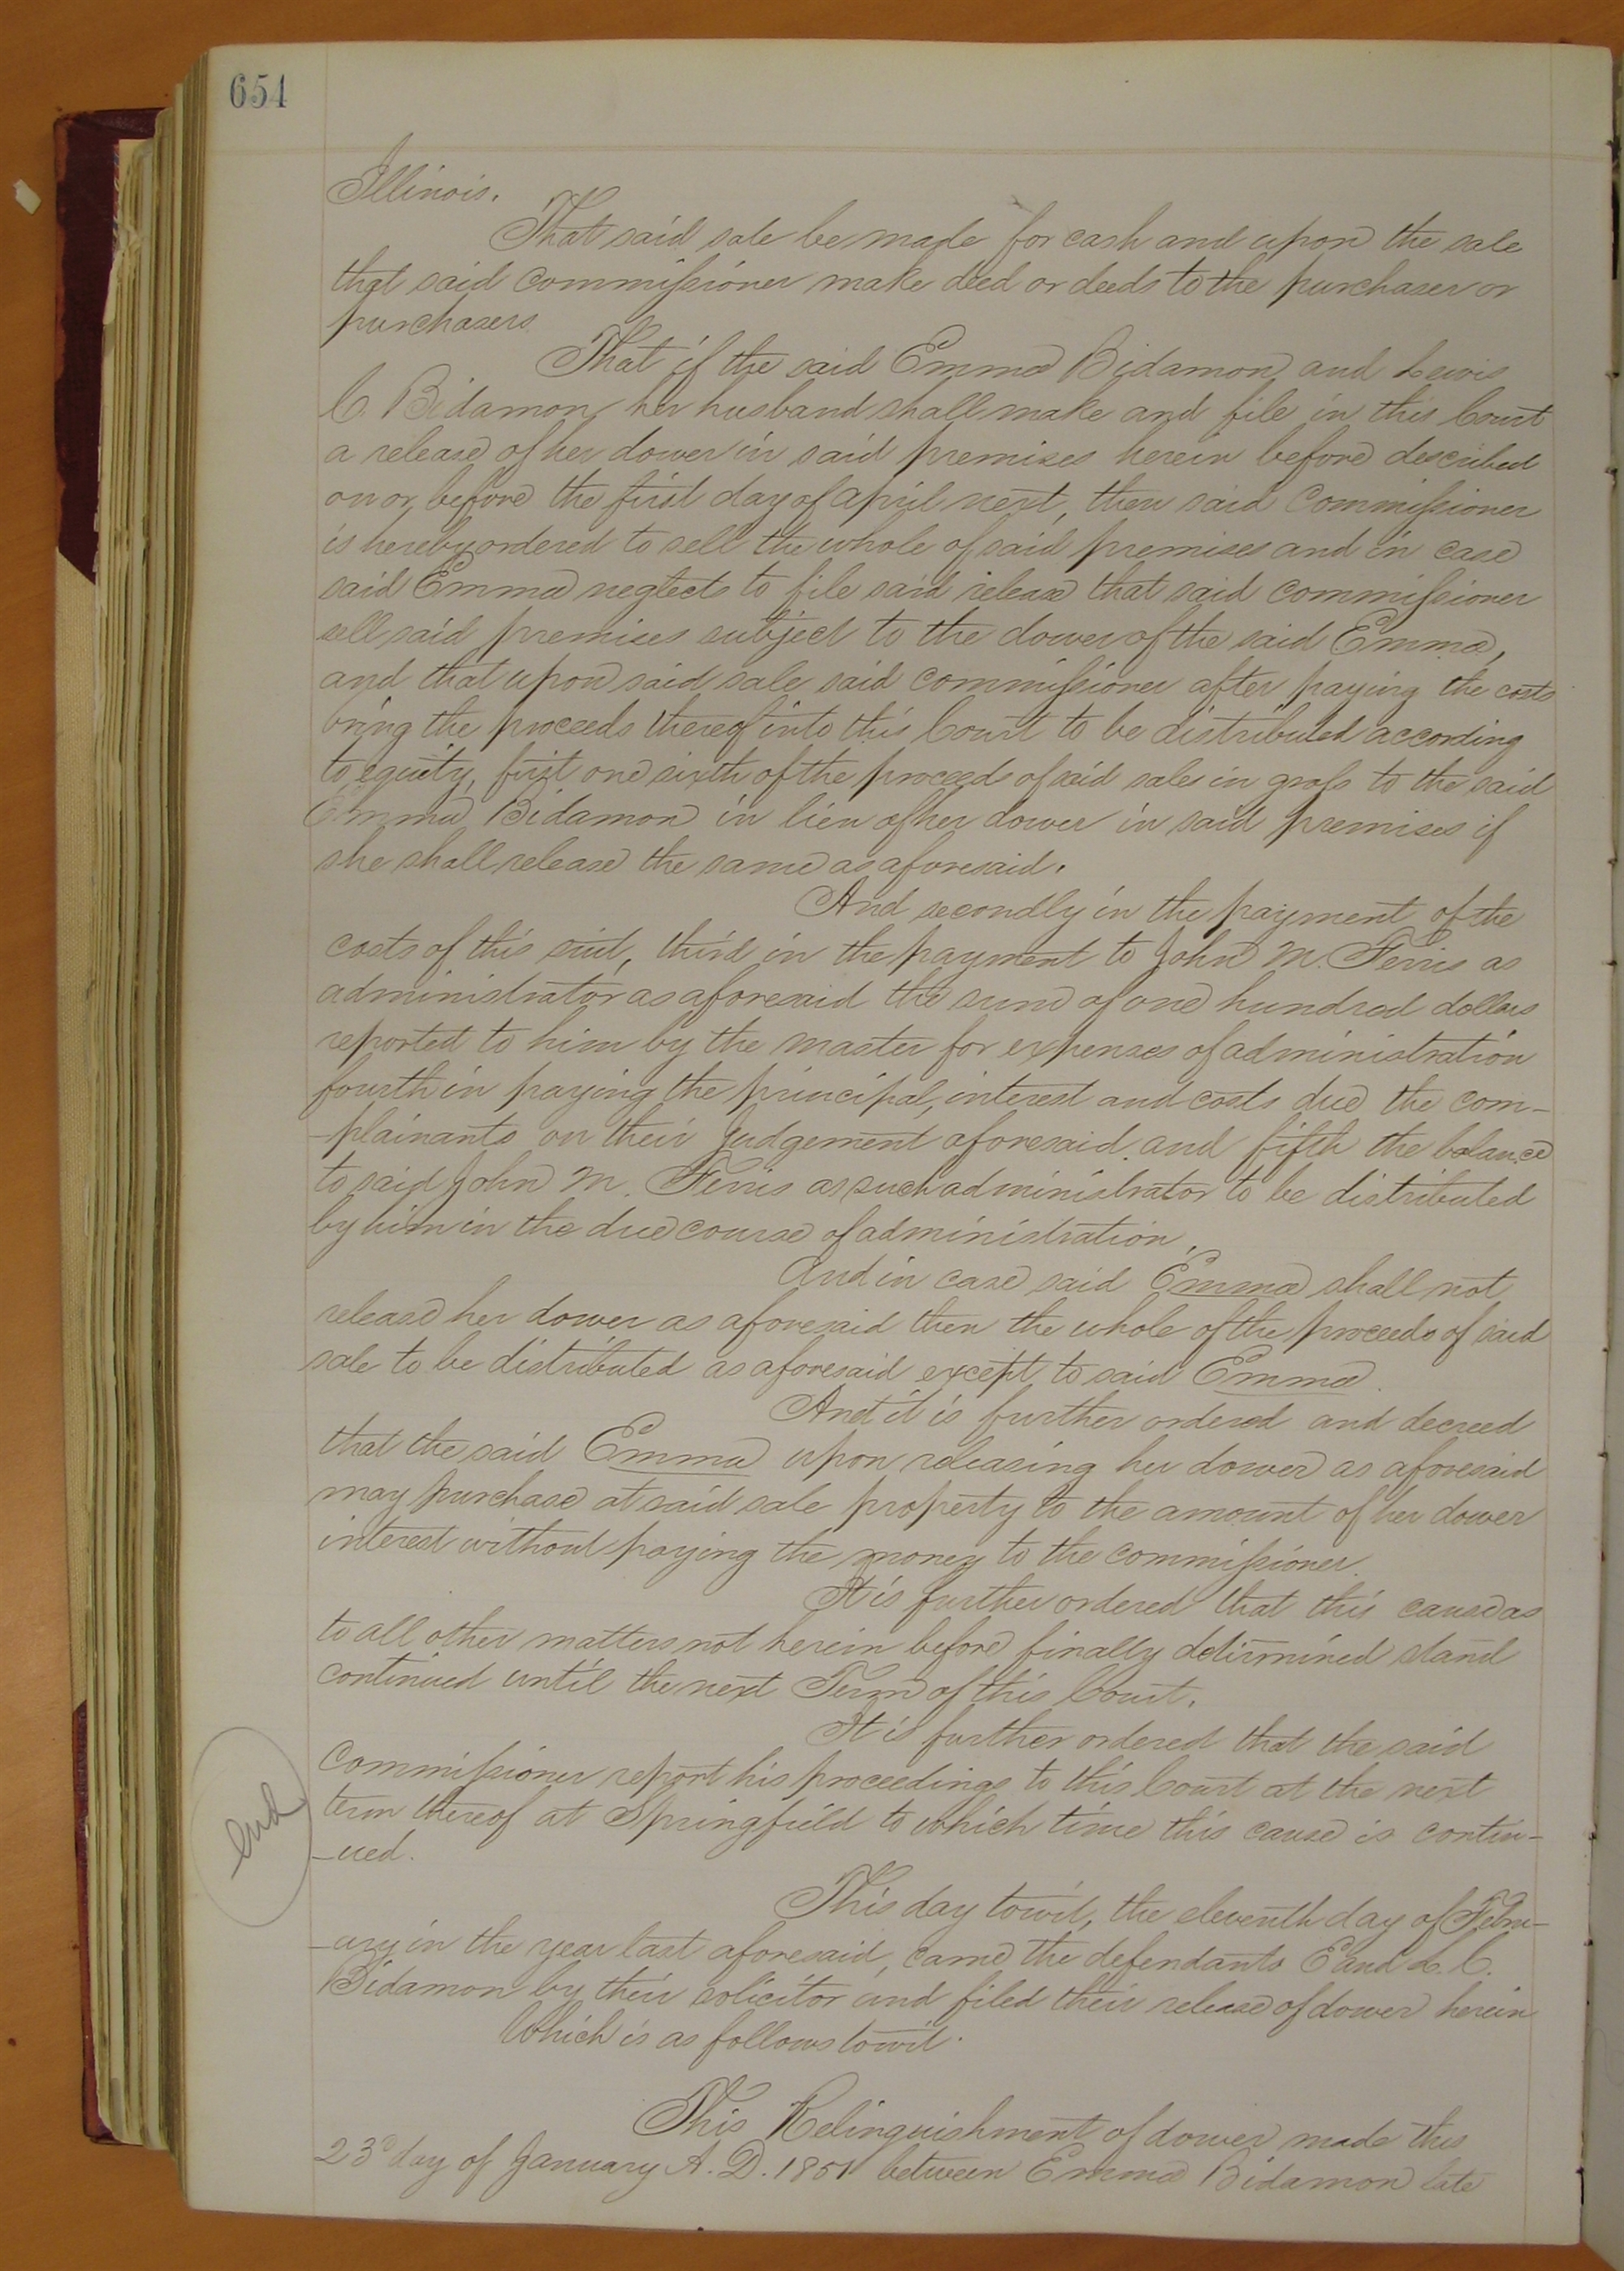 654
Illinois.
That said sale be made for cash and upon the sale
that said commissioner make deed or deeds to the purchaser or
purchasers
That if the said Emma Bidamon and Lewis
C. Bidamon her husband shall make and file in this Court
a release of her dower in said premises herein before described
on or before the first day of april next, then said Commissioner
is hereby ordered to sell the whole of said premises and in case
said Emma neglects to file said release that said commissioner
sell said premises subject to the dower of the said Emma,
and that upon said sale said commissioner after paying the costs
bring the proceeds thereof into this Court to be distributed according
to equity, first one sixth of the proceeds of said sales in gross to the said
Emma Bidamon in lieu of her dower in said premises if
she shall release the same as aforesaid.
And secondly in the payment of the
costs of this suit, third in the payment to John M. Ferris as
administrator as aforesaid the sum of one hundred dollars
reported to him by the master for expenses of administration
fourth in paying the principal, interest and costs due the com-
-plainants on their Judgement aforesaid. and fifth the balance
to said John M. Ferris as such administrator to be distributed
by him in the due course of administration.
And in case said Emma shall not
release her dower as aforesaid then the whole of the proceeds of said
sale to be distributed as aforesaid except to said Emma.
And it is further ordered and decreed
that the said Emma upon releasing her dower as aforesaid
may purchase at said sale property to the amount of her dower
interest without paying the money to the commissioner.
It is further ordered that this cause as
to all other matters not herein before finally detirmined stand
continued until the next Term of this Court.
It is further ordered that the said
Commissioner report his proceedings to this Court at the next
term thereof at Springfield to which time this cause is contin-
-ued.
end
This day towit, the eleventh day of Febru-
-ary in the year last aforesaid, came the defendants E and L. C.
Bidamon by their solicitor and filed their release of dower herein
Which is as follows towit.
This Relinquishment of dower made this
23d day of January A. D. 1851 between Emma Bidamon late